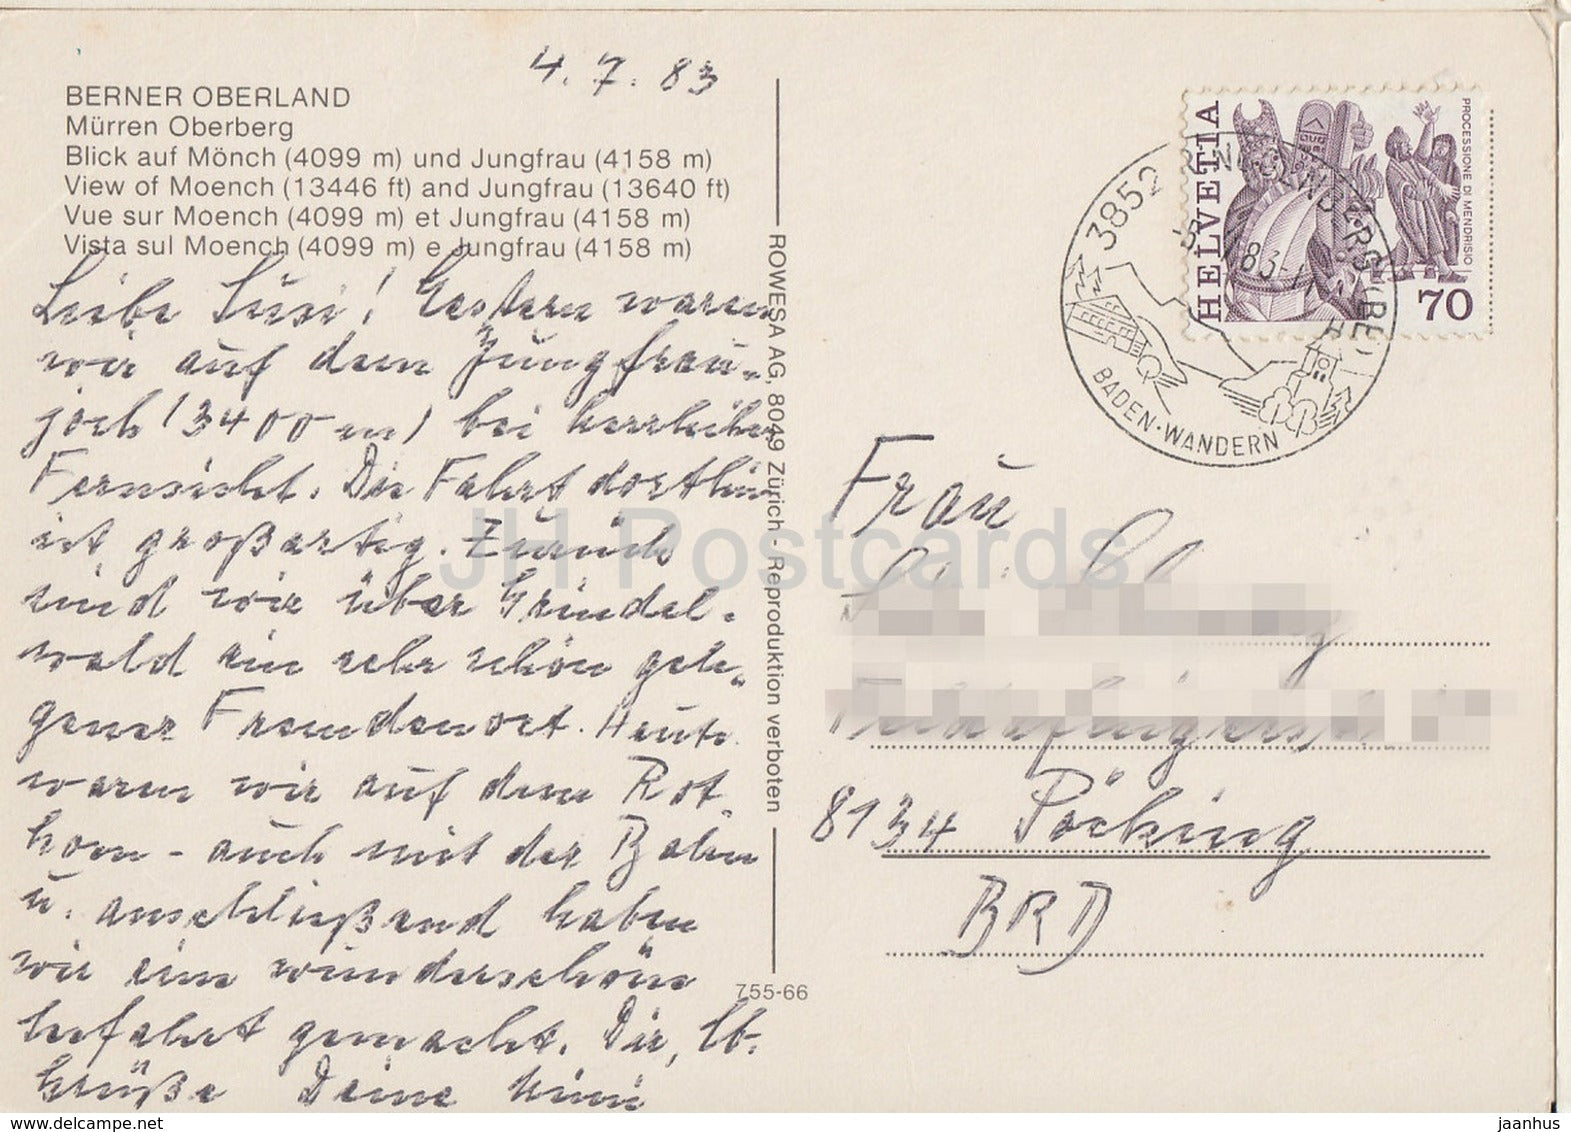 4.7.83
BERNER OBERLAND
Mürren Oberberg
Blick auf Mönch (4099 m) und Jungfrau (4158 m)
View of Moench (13446 ft) and Jungfrau (13640 ft)
Vue sur Moench (4099 m) et Jungfrau (4158 m)
Vista sul Moench (4099 m) e Jungfrau (4158 m)
Liebe Susi! Gestern waren
wir auf dem Jungfrau-
joch (3400 m) bei herrlicher
Fernsicht. Die Fahrt dorthin
ist großartig. Zurück
sind wir über Grindel-
wald ein sehr schön gele-
gener Fremdenort. Heute
waren wir auf dem Rot-
horn - auch mit der Bahn
u. anschließend haben
wir eine wunderschöne
gemacht. Dir, lb.
Grüße Deine
ROWESA AG, 8049 Zürich - Reproduktion verboten
755-66
HELVETIA
PROCESSIONE DI MENDRISIO
70
3852 RINGGENBERG (BE)
BADEN · WANDERN
Frau
8134 Pöcking
BRD
JH Postcards
www.delcampe.net
jaanhus